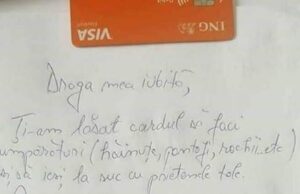 VISA
ING
Draga mea iubită,
Ți-am lăsat cardul să faci
umpărături (hăinuțe, pantofi, rochii..etc)
și să ieși la suc cu prietenele tale.